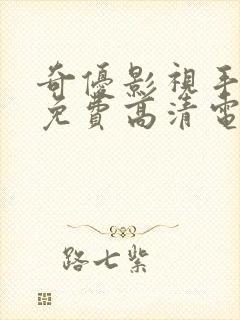 奇優影視手
免費高清電
路七紫